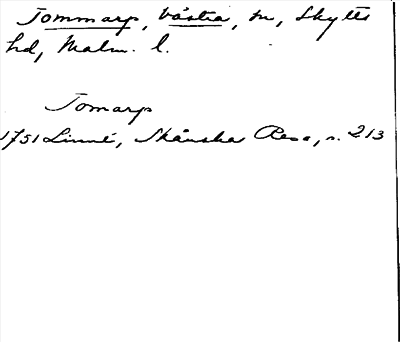 Tommarp, Västra, sn, Skytts
hd, Malm. l.
Tomarp
1751 Linné, Skånska Resa, s. 213